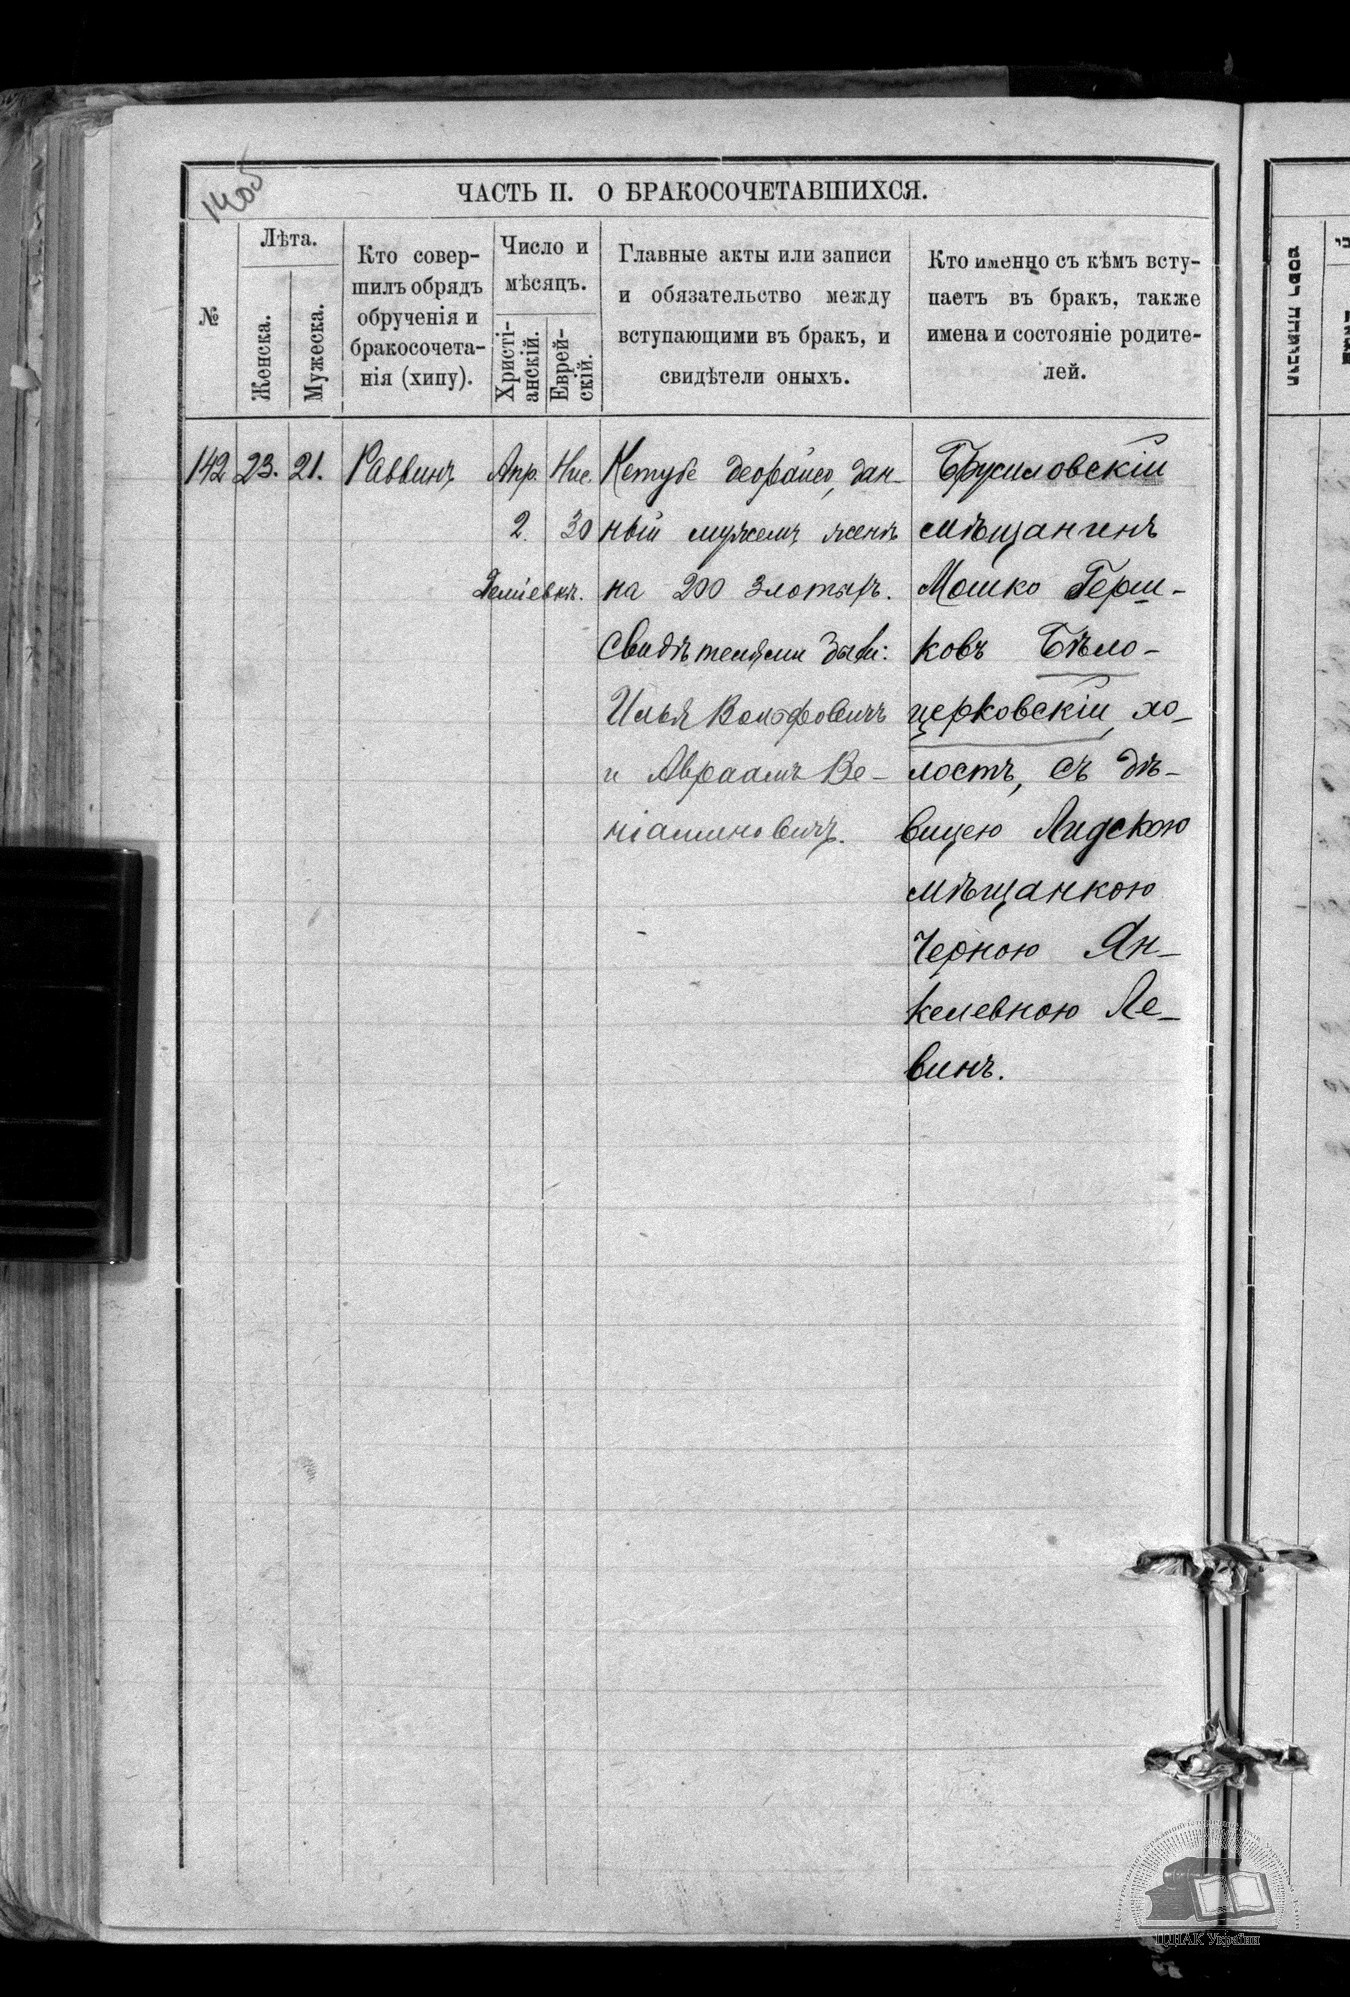 1405
ЧАСТЬ II. О БРАКОСОЧЕТАВШИХСЯ.
№
Лѣта.
Женска.
Мужеска.
Кто совер-
шилъ обрядъ
обрученія и
бракосочета-
нія (хипу).
Число и
мѣсяцъ.
Христі-
анскій.
Еврей-
скій.
Главные акты или записи
и обязательство между
вступающими въ бракъ, и
свидѣтели оныхъ.
Кто именно съ кѣмъ всту-
паетъ въ бракъ, также
имена и состояніе родите-
лей.
142
23.
21.
Раввинъ
Апр.
2.
Нис.
30
Демiевкѣ.
Кетубе деорайсо, дан-
ный мужемъ женѣ
на 200 злотыхъ.
Свидѣтелями были:
Илья Вольфовичъ
и Авраамъ Ве-
ніаминовичъ.
Брусиловскій
мѣщанинъ
Мошко Герш-
ковъ Бѣло-
церковскій, хо-
лостъ, съ дѣ-
вицею Лидскою
мѣщанкою
Черною Ян-
келевною Ле-
винъ.
ЦДІАК України